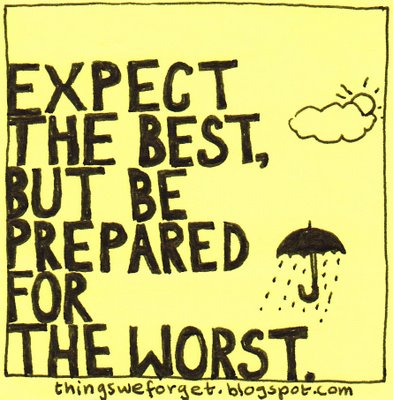 EXPECT
THE BEST,
BUT BE
PREPARED
FOR
THE WORST.
thingsweforget.blogspot.com